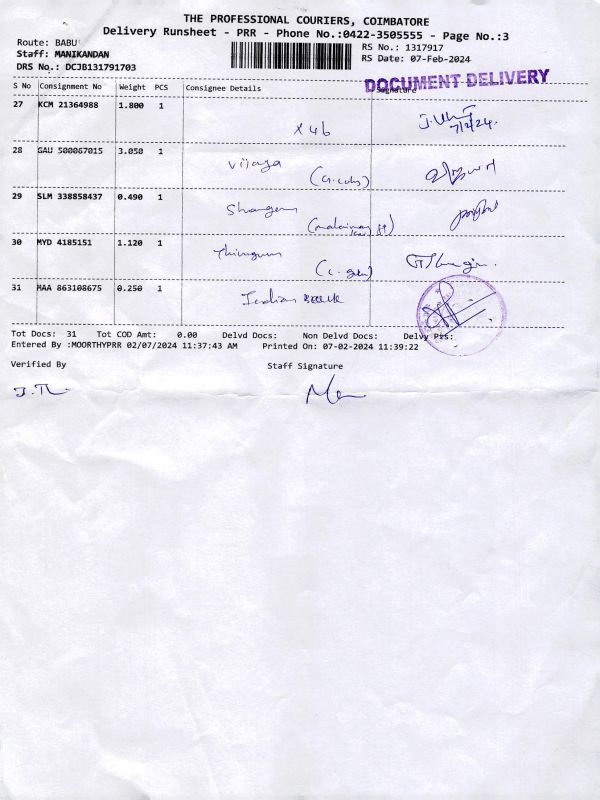 THE PROFESSIONAL COURIERS, COIMBATORE
Delivery Runsheet - PRR - Phone No.:0422-3505555 - Page No.:3
Route: BABU
Staff: MANIKANDAN
DRS No.: DCJB131791703
RS No.: 1317917
RS Date: 07-Feb-2024
DOCUMENT DELIVERY
S No Consignment No Weight PCS Consignee Details Signature
27 KCM 21364988 1.800 1
X 46
7/2/24.
28 GAU 500067015 3.050 1
Vijaya
29 SLM 338858437 0.490 1
30 MYD 4185151 1.120 1
31 MAA 863108675 0.250 1
Indian Bank
Tot Docs: 31 Tot COD Amt: 0.00 Delvd Docs: Non Delvd Docs: Delvy Pts:
Entered By :MOORTHYPRR 02/07/2024 11:37:43 AM Printed On: 07-02-2024 11:39:22
Verified By Staff Signature